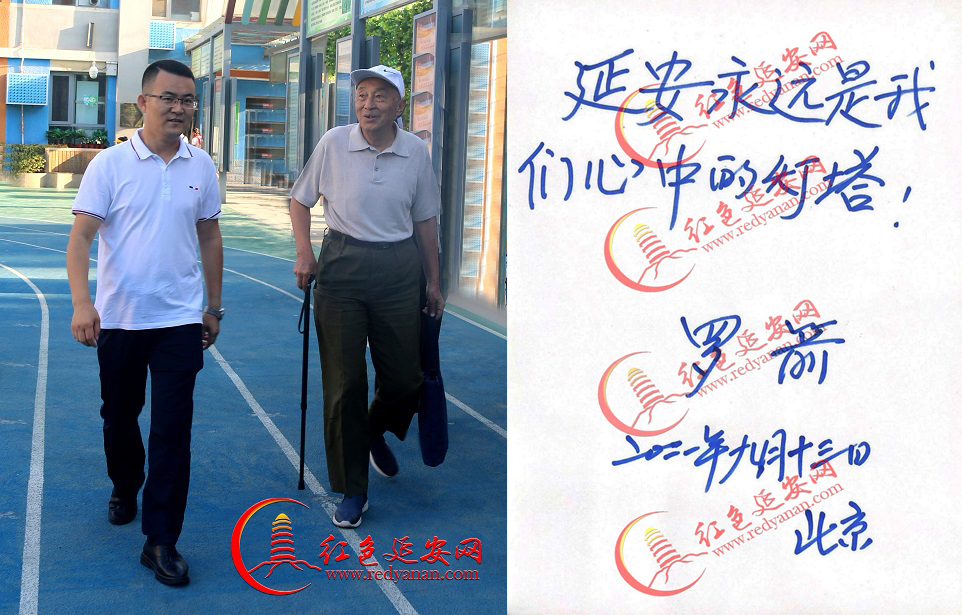 延安永远是我
们心中的灯塔!
罗箭
二〇二一年九月十三日
北京
红色延安网
www.redyanan.com
红色延安网
www.redyanan.com
红色延安网
www.redyanan.com
红色延安网
www.redyanan.com
红色延安网
www.redyanan.com